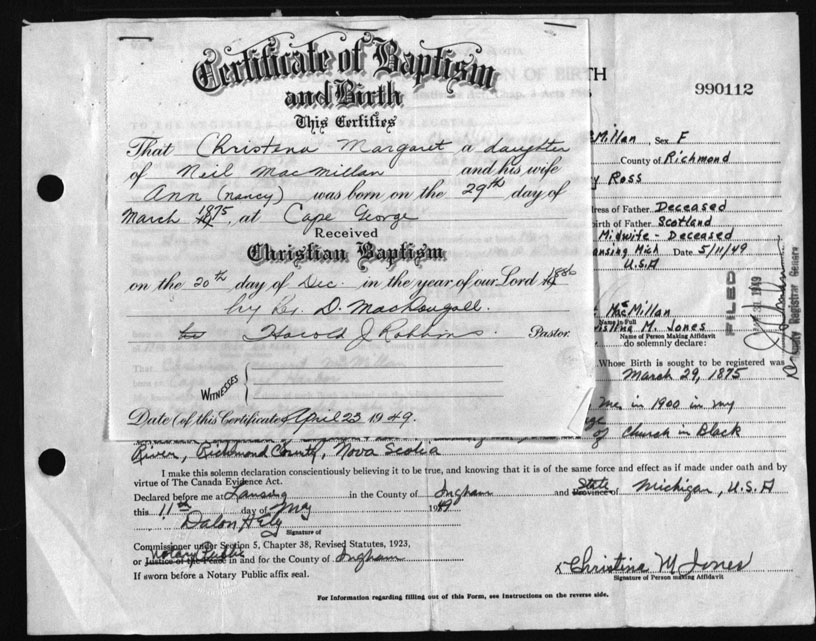 Certificate of Baptism
and Birth
This Certifies
That Christena Margaret a daughter
of Neil MacMillan and his wife
Ann (Nancy) was born on the 29th day of
March 1875, at Cape George
Received
Christian Baptism
on the 20th day of Dec. in the year of our Lord 1886
by Rev. D. MacDougall.
Harold J Robbins. Pastor.
WITNESSES
Date of this Certificate April 23 1949.
TH
990112
Millan, Sex F
County of Richmond
y Ross
ress of Father Deceased
irth of Father Scotland
Midwife - Deceased
ansing Mich Date 5/11/49
U.S.A
FILED
1949
Registrar General
McMillan
Name in Full
istina M. Jones
Name of Person Making Affidavit
do solemnly declare:
Whose Birth is sought to be registered was
March 29, 1875
me in 1900 in my
of Church in Black
River, Richmond County, Nova Scotia
I make this solemn declaration conscientiously believing it to be true, and knowing that it is of the same force and effect as if made under oath and by
virtue of The Canada Evidence Act.
Declared before me at Lansing in the County of Ingham and State Province of Michigan, U.S.A
this 11th day of May 1949
Dalon H Ely
Signature of
Commissioner under Section 5, Chapter 38, Revised Statutes, 1923,
Notary Public
or Justice of the Peace in and for the County of Ingham
If sworn before a Notary Public affix seal.
x Christina M Jones
Signature of Person making Affidavit
For Information regarding filling out of this Form, see Instructions on the reverse side.